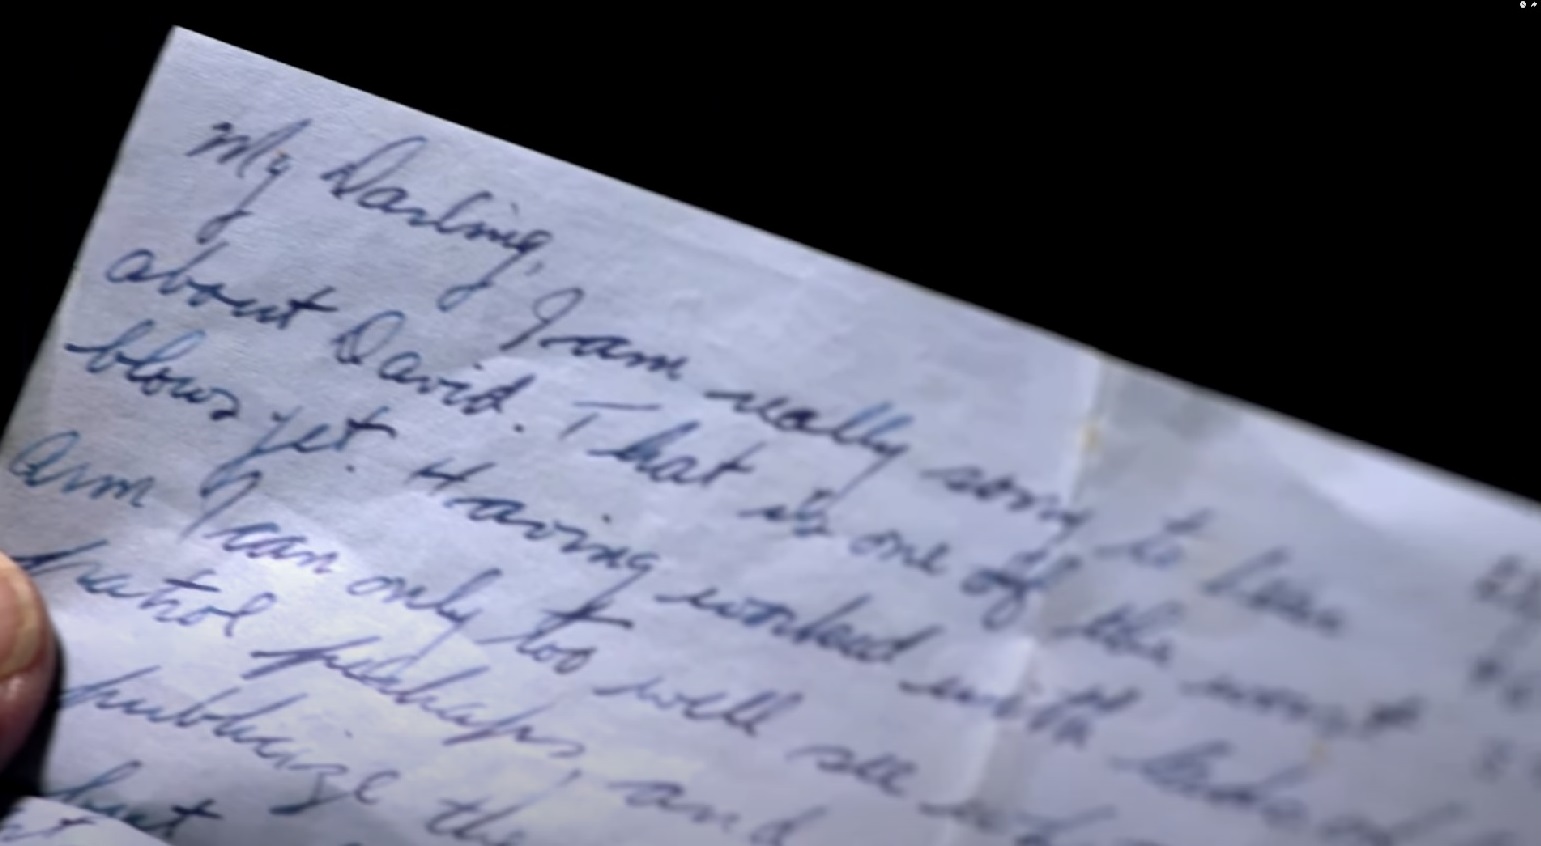 My Darling,
I am really sorry to hear
about David. That is one of the worst
blows yet. Having worked with
arm I can only too well see
patrol perhaps, and
publicize the
but